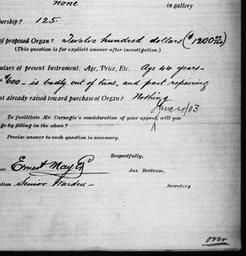 None
in gallery
bership? 125
of proposed Organ? Twelve hundred dollars ($1200 00/100)
(This question is for explicit answer after investigation.)
culars of present Instrument, Age, Price, Etc. Age 44 years—
— is badly out of tune, and past repairing
nt already raised toward purchase of Organ? Nothing
To facilitate Mr. Carnegie's consideration of your appeal, will you
ge by filling in the above?
Precise answer to each question is necessary.
Respectfully,
Ernest May
Jas. Bertram,
Senior Warden
Secretary
over